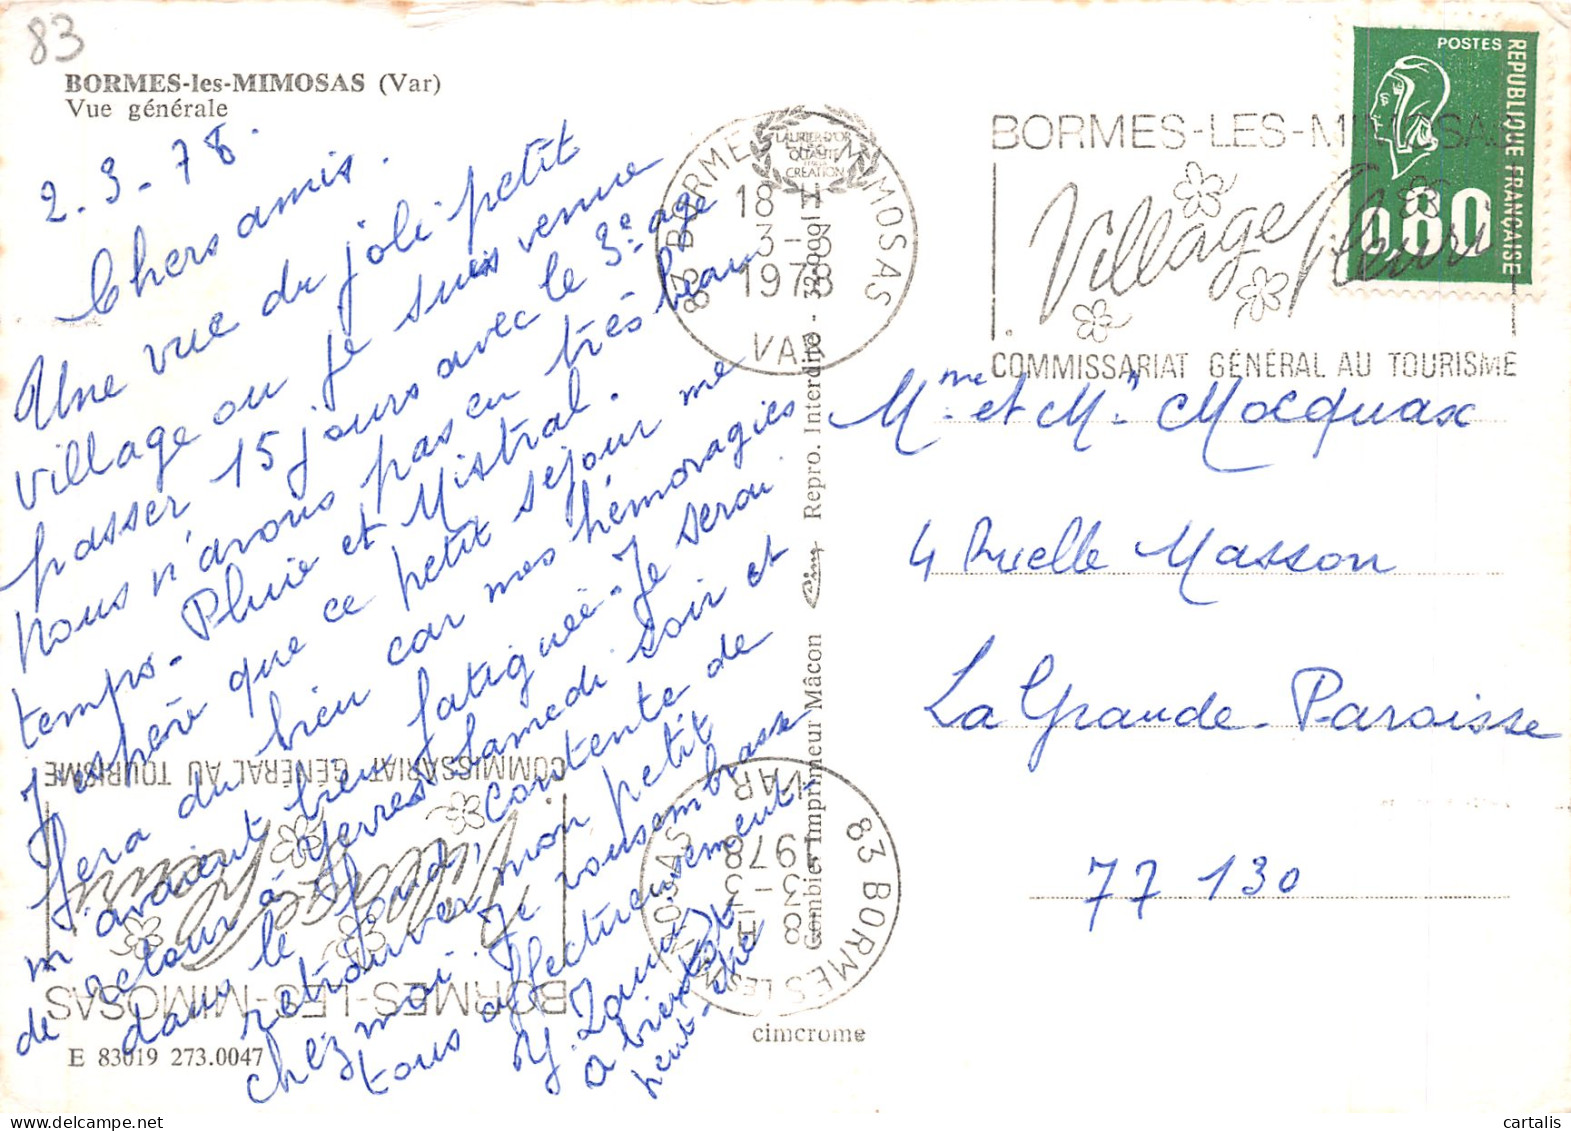 83
BORMES-les-MIMOSAS (Var)
Vue générale
2.3-78.
Chers amis.
Une vue du joli petit
village ou je suis venue
passer 15 jours avec le 3e age
Nous n'avons pas eu très beau
temps - Pluie et Mistral.
J'espère que ce petit sejour me
fera du bien car mes hémoragies
m'avaient bien fatiguée - Je serai
de retour à Yerres Samedi soir et
dans le fond, contente de
retrouver mon petit
chez moi. Je vous embrasse
tous affectueusement.
a bientot
peut-être
E 83019 273.0047
cimcrome
Combier Imprimeur Mâcon Cim Repro. Interdite -
LAURIER D'OR
QUALITÉ
CRÉATION
83 BORMES LES MIMOSAS
18 H
3-3
1978
VAR
BORMES-LES-MIMOSAS
Village fleuri
COMMISSARIAT GÉNÉRAL AU TOURISME
POSTES
REPUBLIQUE FRANÇAISE
0,80
Mme et Mr Mocquax
4 Ruelle Masson
La Grande-Paroisse
77 130
83 BORMES LES MIMOSAS
18 H
3-3
1978
VAR
BORMES-LES-MIMOSAS
Village fleuri
COMMISSARIAT GÉNÉRAL AU TOURISME
cartalis